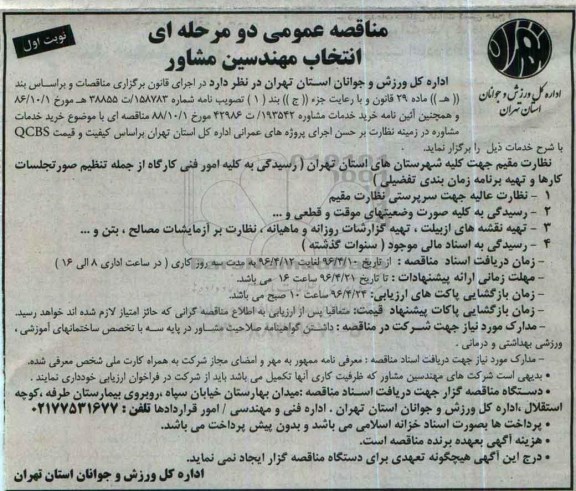 نوبت اول
مناقصه عمومی دو مرحله ای
انتخاب مهندسین مشاور
اداره کل ورزش و جوانان
استان تهران
اداره کل ورزش و جوانان استان تهران در نظر دارد در اجرای قانون برگزاری مناقصات و براساس بند
(( هـ )) ماده ۲۹ قانون و با رعایت جزء (( ج )) بند ( ۱ ) تصویب نامه شماره ۱۵۸۷۸۳/ت ۳۸۸۵۵ هـ مورخ ۸۶/۱۰/۱
و همچنین آئین نامه خرید خدمات مشاوره ۱۹۳۵۴۲/ ت ۴۲۹۸۶ مورخ ۸۸/۱۰/۱ مناقصه ای با موضوع خرید خدمات
مشاوره در زمینه نظارت بر حسن اجرای پروژه های عمرانی اداره کل استان تهران براساس کیفیت و قیمت QCBS
با شرح خدمات ذیل را برگزار نماید.
نظارت مقیم جهت کلیه شهرستان های استان تهران ( رسیدگی به کلیه امور فنی کارگاه از جمله تنظیم صورتجلسات
کارها و تهیه برنامه زمان بندی تفضیلی )
۱ - نظارت عالیه جهت سرپرستی نظارت مقیم
۲ - رسیدگی به کلیه صورت وضعیتهای موقت و قطعی و ...
۳ - تهیه نقشه های ازبیلت ، تهیه گزارشات روزانه و ماهیانه ، نظارت بر آزمایشات مصالح ، بتن و ...
۴ - رسیدگی به اسناد مالی موجود ( سنوات گذشته )
– زمان دریافت اسناد مناقصه : از تاریخ ۹۶/۴/۱۰ لغایت ۹۶/۴/۱۲ به مدت سه روز کاری ( در ساعت اداری ۸ الی ۱۶ )
– مهلت زمانی ارائه پیشنهادات : تا تاریخ ۹۶/۴/۲۱ ساعت ۱۶ می باشد.
– زمان بازگشایی پاکت های ارزیابی: ۹۶/۴/۲۴ ساعت ۱۰ صبح می باشد.
– زمان بازگشایی پاکات پیشنهاد قیمت: متعاقبا پس از ارزیابی به اطلاع مناقصه گرانی که حائز امتیاز لازم شده اند خواهد رسید.
– مدارک مورد نیاز جهت شرکت در مناقصه : داشتن گواهینامه صلاحیت مشاور در پایه سه با تخصص ساختمانهای آموزشی ،
ورزشی بهداشتی و درمانی .
– مدارک مورد نیاز جهت دریافت اسناد مناقصه : معرفی نامه ممهور به مهر و امضای مجاز شرکت به همراه کارت ملی شخص معرفی شده.
• بدیهی است شرکت های مهندسین مشاور که ظرفیت کاری آنها تکمیل می باشد باید از شرکت در فراخوان ارزیابی خودداری نمایند .
• دستگاه مناقصه گزار جهت دریافت اسناد مناقصه :میدان بهارستان خیابان سپاه ،روبروی بیمارستان طرفه ،کوچه
استقلال ،اداره کل ورزش و جوانان استان تهران . اداره فنی و مهندسی / امور قراردادها تلفن : ۰۲۱۷۷۵۳۱۶۷۷
• پرداخت ها بصورت اسناد خزانه اسلامی می باشد و بدون پیش پرداخت می باشد.
• هزینه آگهی بعهده برنده مناقصه است.
• درج این آگهی هیچگونه تعهدی برای دستگاه مناقصه گزار ایجاد نمی نماید.
اداره کل ورزش و جوانان استان تهران